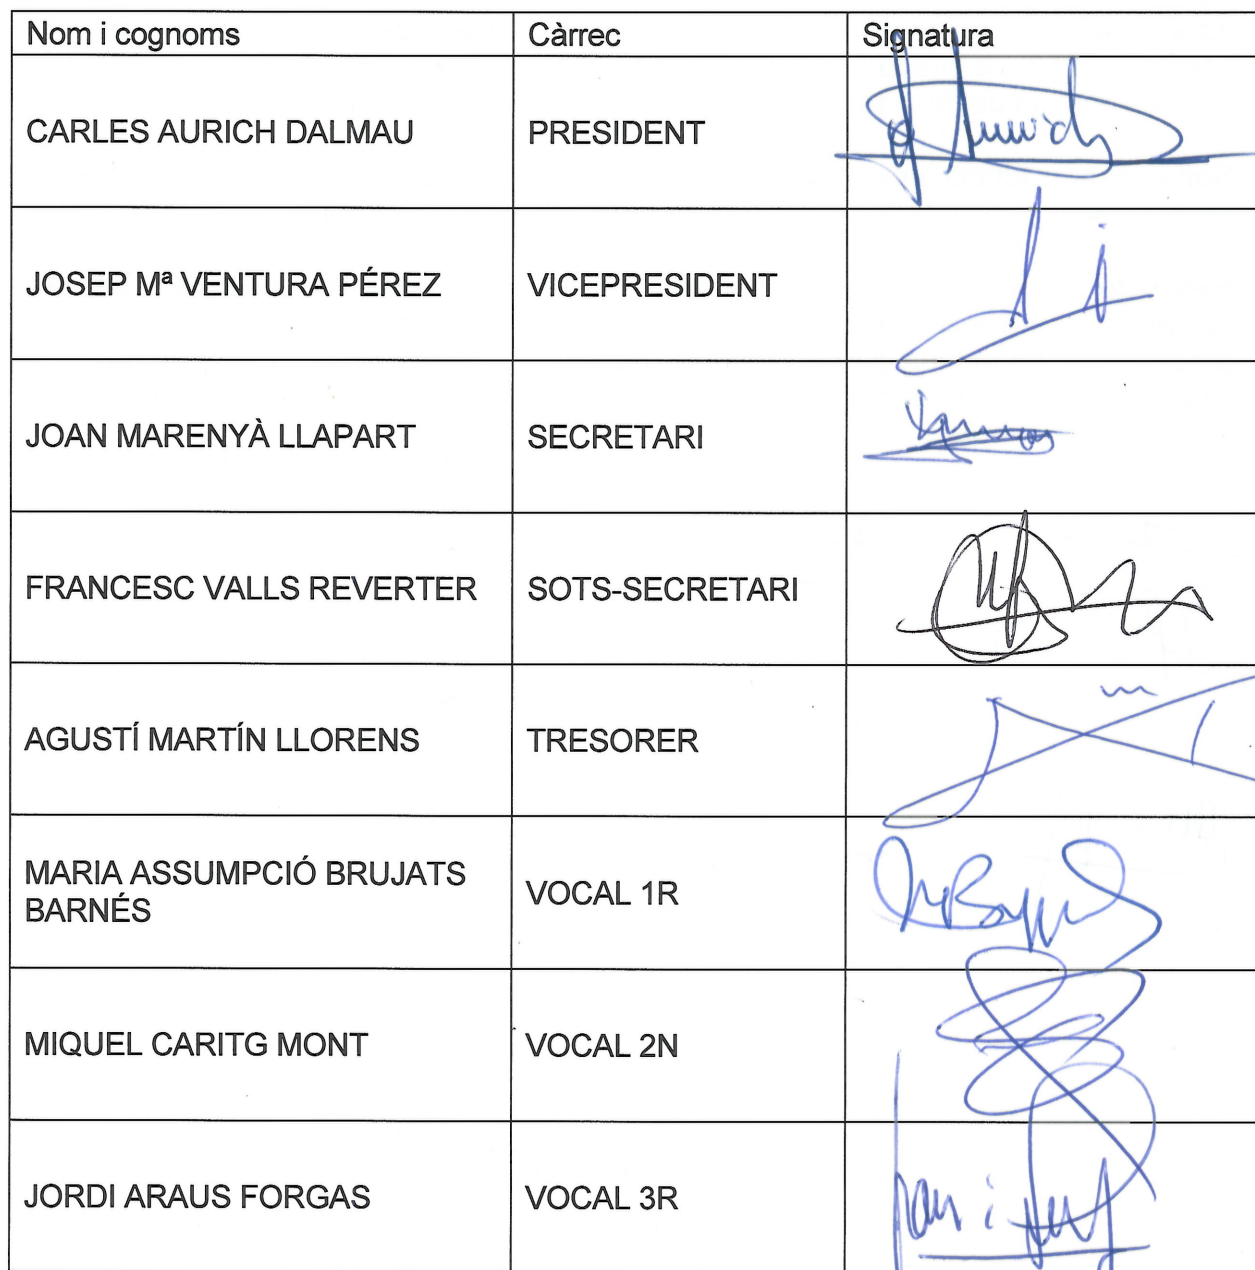 Nom i cognoms Càrrec Signatura
CARLES AURICH DALMAU PRESIDENT
JOSEP Mª VENTURA PÉREZ VICEPRESIDENT
JOAN MARENYÀ LLAPART SECRETARI
FRANCESC VALLS REVERTER SOTS-SECRETARI
AGUSTÍ MARTÍN LLORENS TRESORER
MARIA ASSUMPCIÓ BRUJATS
BARNÉS VOCAL 1R
MIQUEL CARITG MONT VOCAL 2N
JORDI ARAUS FORGAS VOCAL 3R